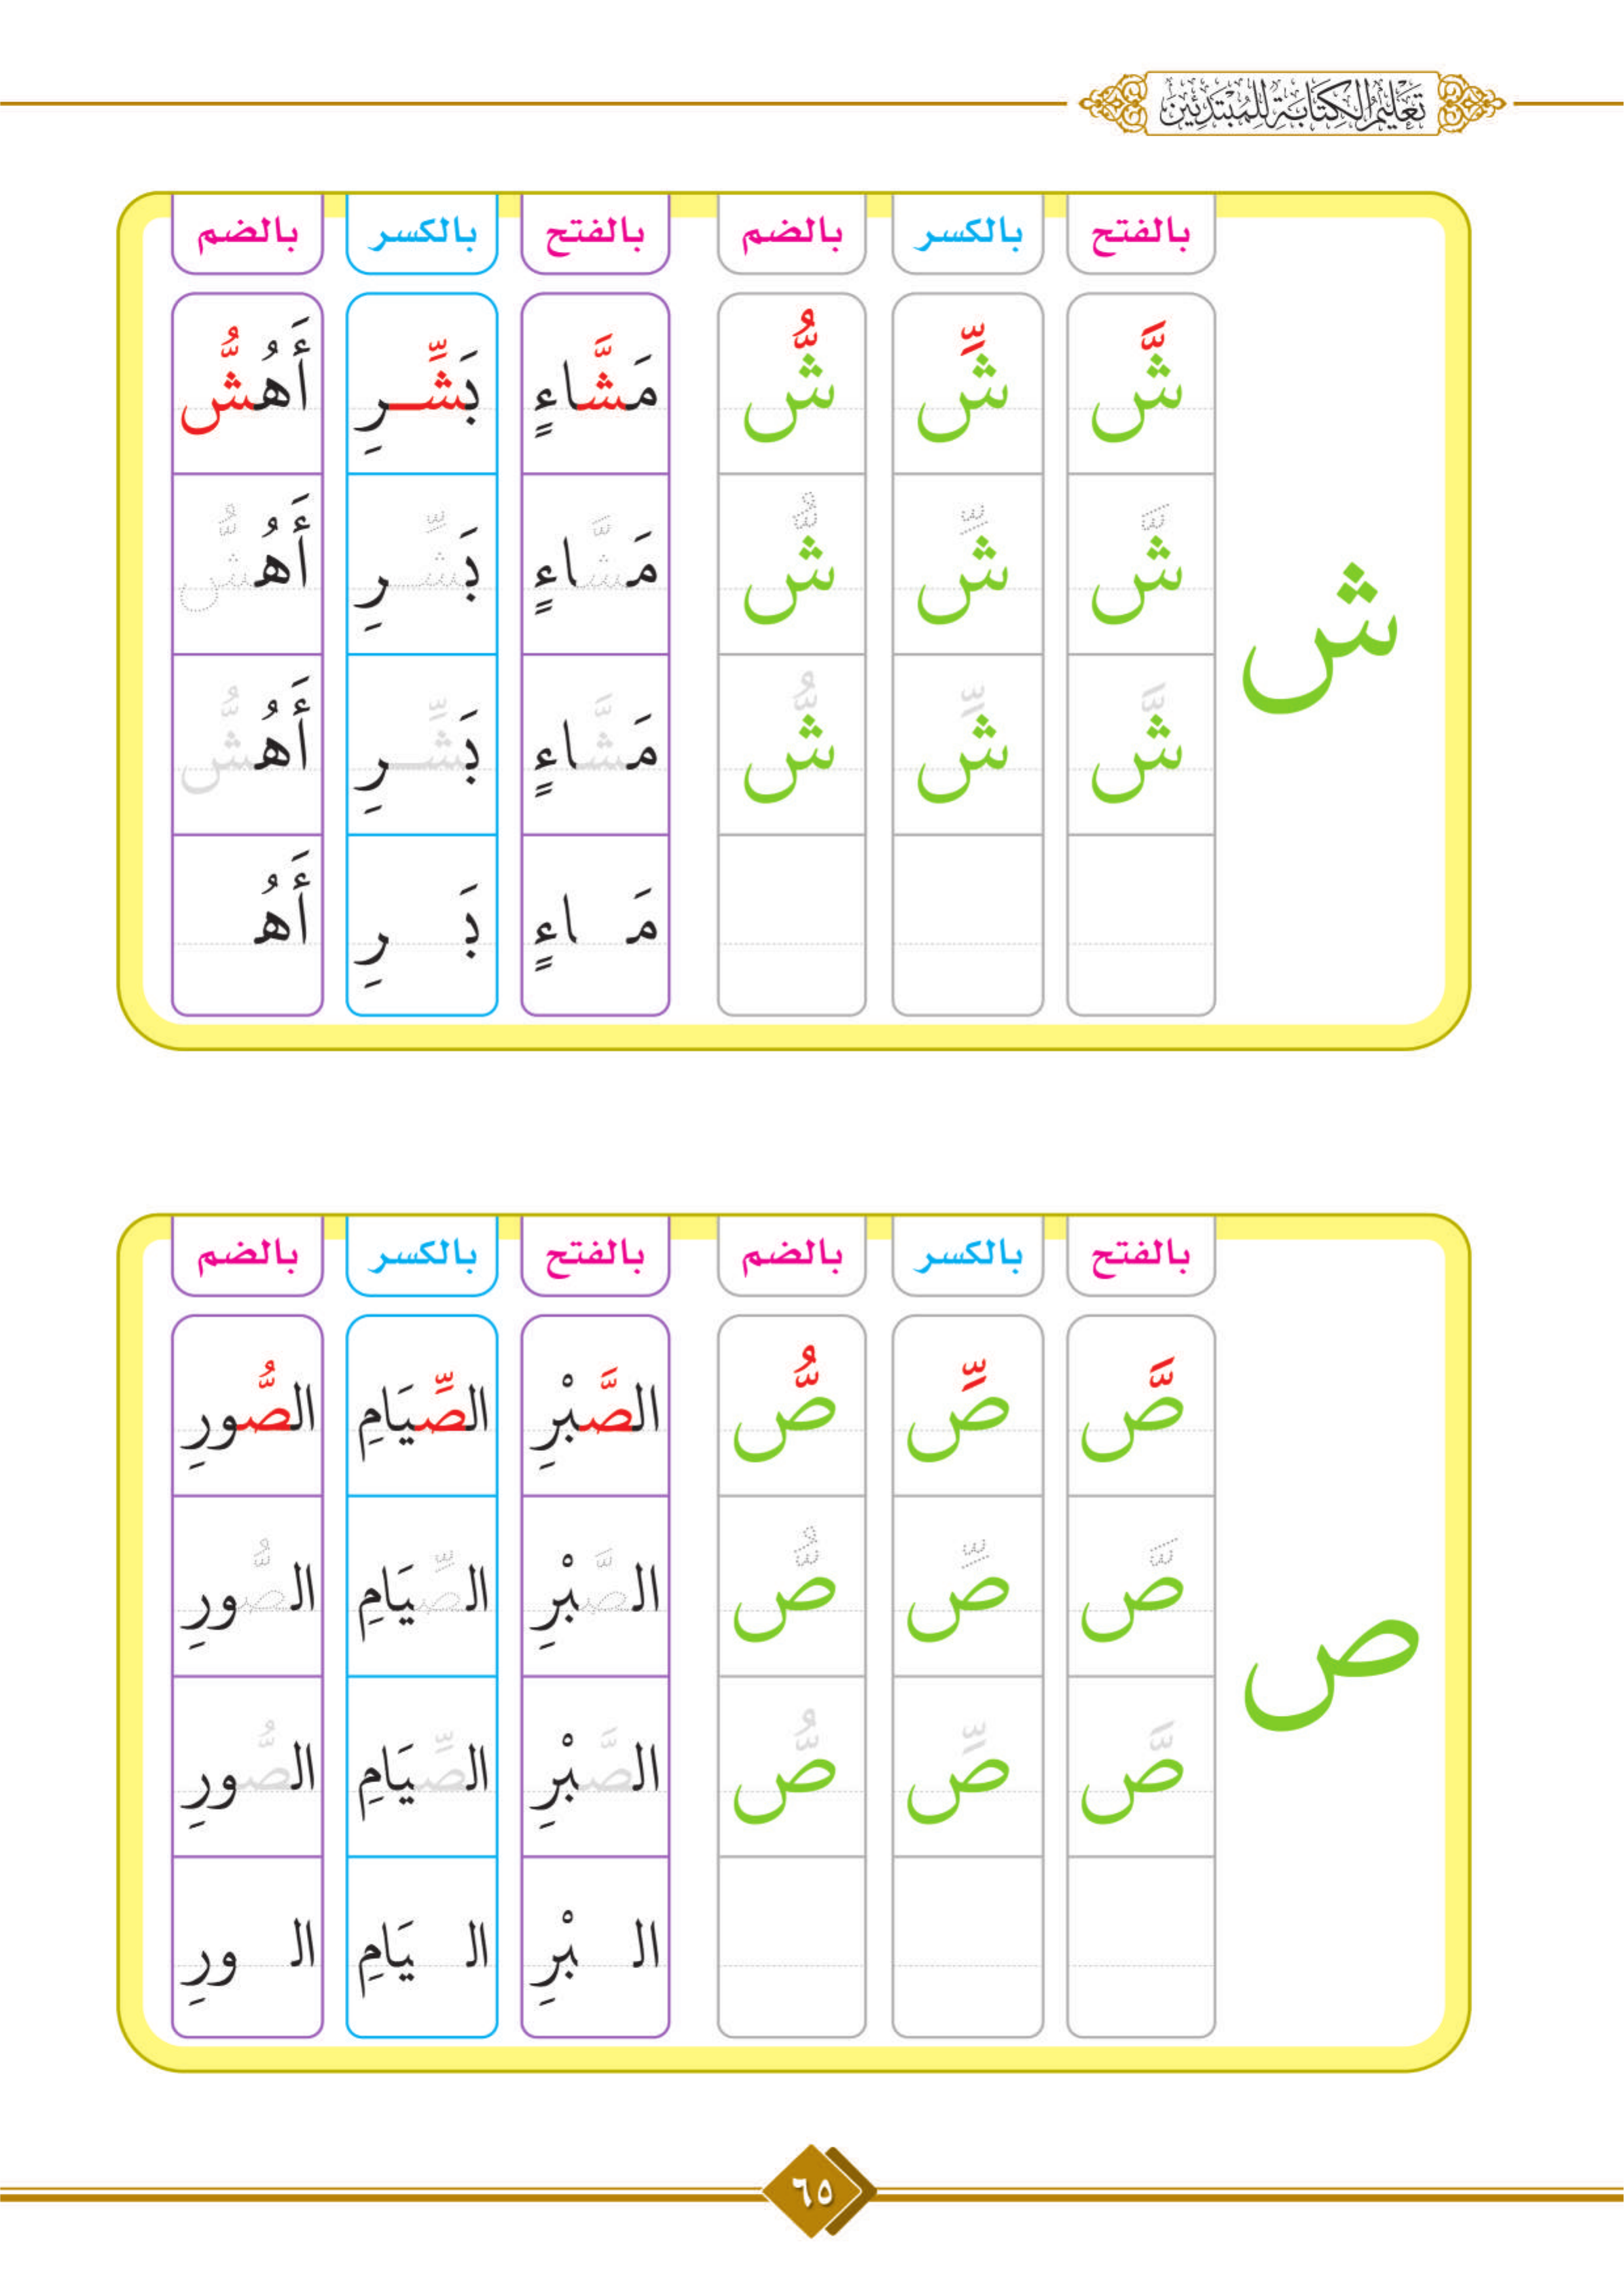 تَعْلِيمُ الْكِتَابَةِ لِلْمُبْتَدِئِينَ
بالفتح بالكسر بالضم بالفتح بالكسر بالضم
شَّ شِّ شُّ مَشَّاءٍ بَشِّرِ أَهُشُّ
شَّ شِّ شُّ مَشَّاءٍ بَشِّرِ أَهُشُّ
ش
شَّ شِّ شُّ مَشَّاءٍ بَشِّرِ أَهُشُّ
مَـ ـاءٍ بَـ ـرِ أَهُـ
بالفتح بالكسر بالضم بالفتح بالكسر بالضم
صَّ صِّ صُّ الصَّبْرِ الصِّيَامِ الصُّورِ
صَّ صِّ صُّ الصَّبْرِ الصِّيَامِ الصُّورِ
ص
صَّ صِّ صُّ الصَّبْرِ الصِّيَامِ الصُّورِ
الـ ـبْرِ الـ ـيَامِ الـ ـورِ
٦٥